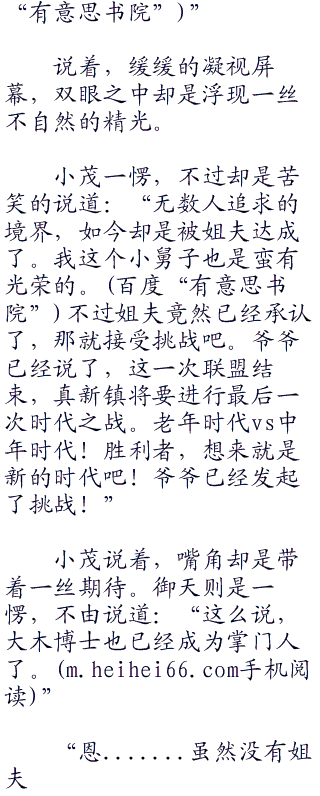 “有意思书院”)”
说着，缓缓的凝视屏
幕，双眼之中却是浮现一丝
不自然的精光。
小茂一愣，不过却是苦
笑的说道：“无数人追求的
境界，如今却是被姐夫达成
了。我这个小舅子也是蛮有
光荣的。(百度“有意思书
院”)不过姐夫竟然已经承认
了，那就接受挑战吧。爷爷
已经说了，这一次联盟结
束，真新镇将要进行最后一
次时代之战。老年时代vs中
年时代！胜利者，想来就是
新的时代吧！爷爷已经发起
了挑战！”
小茂说着，嘴角却是带
着一丝期待。御天则是一
愣，不由说道：“这么说，
大木博士也已经成为掌门人
了。(m.heihei66.com手机阅
读)”
“恩.......虽然没有姐
夫